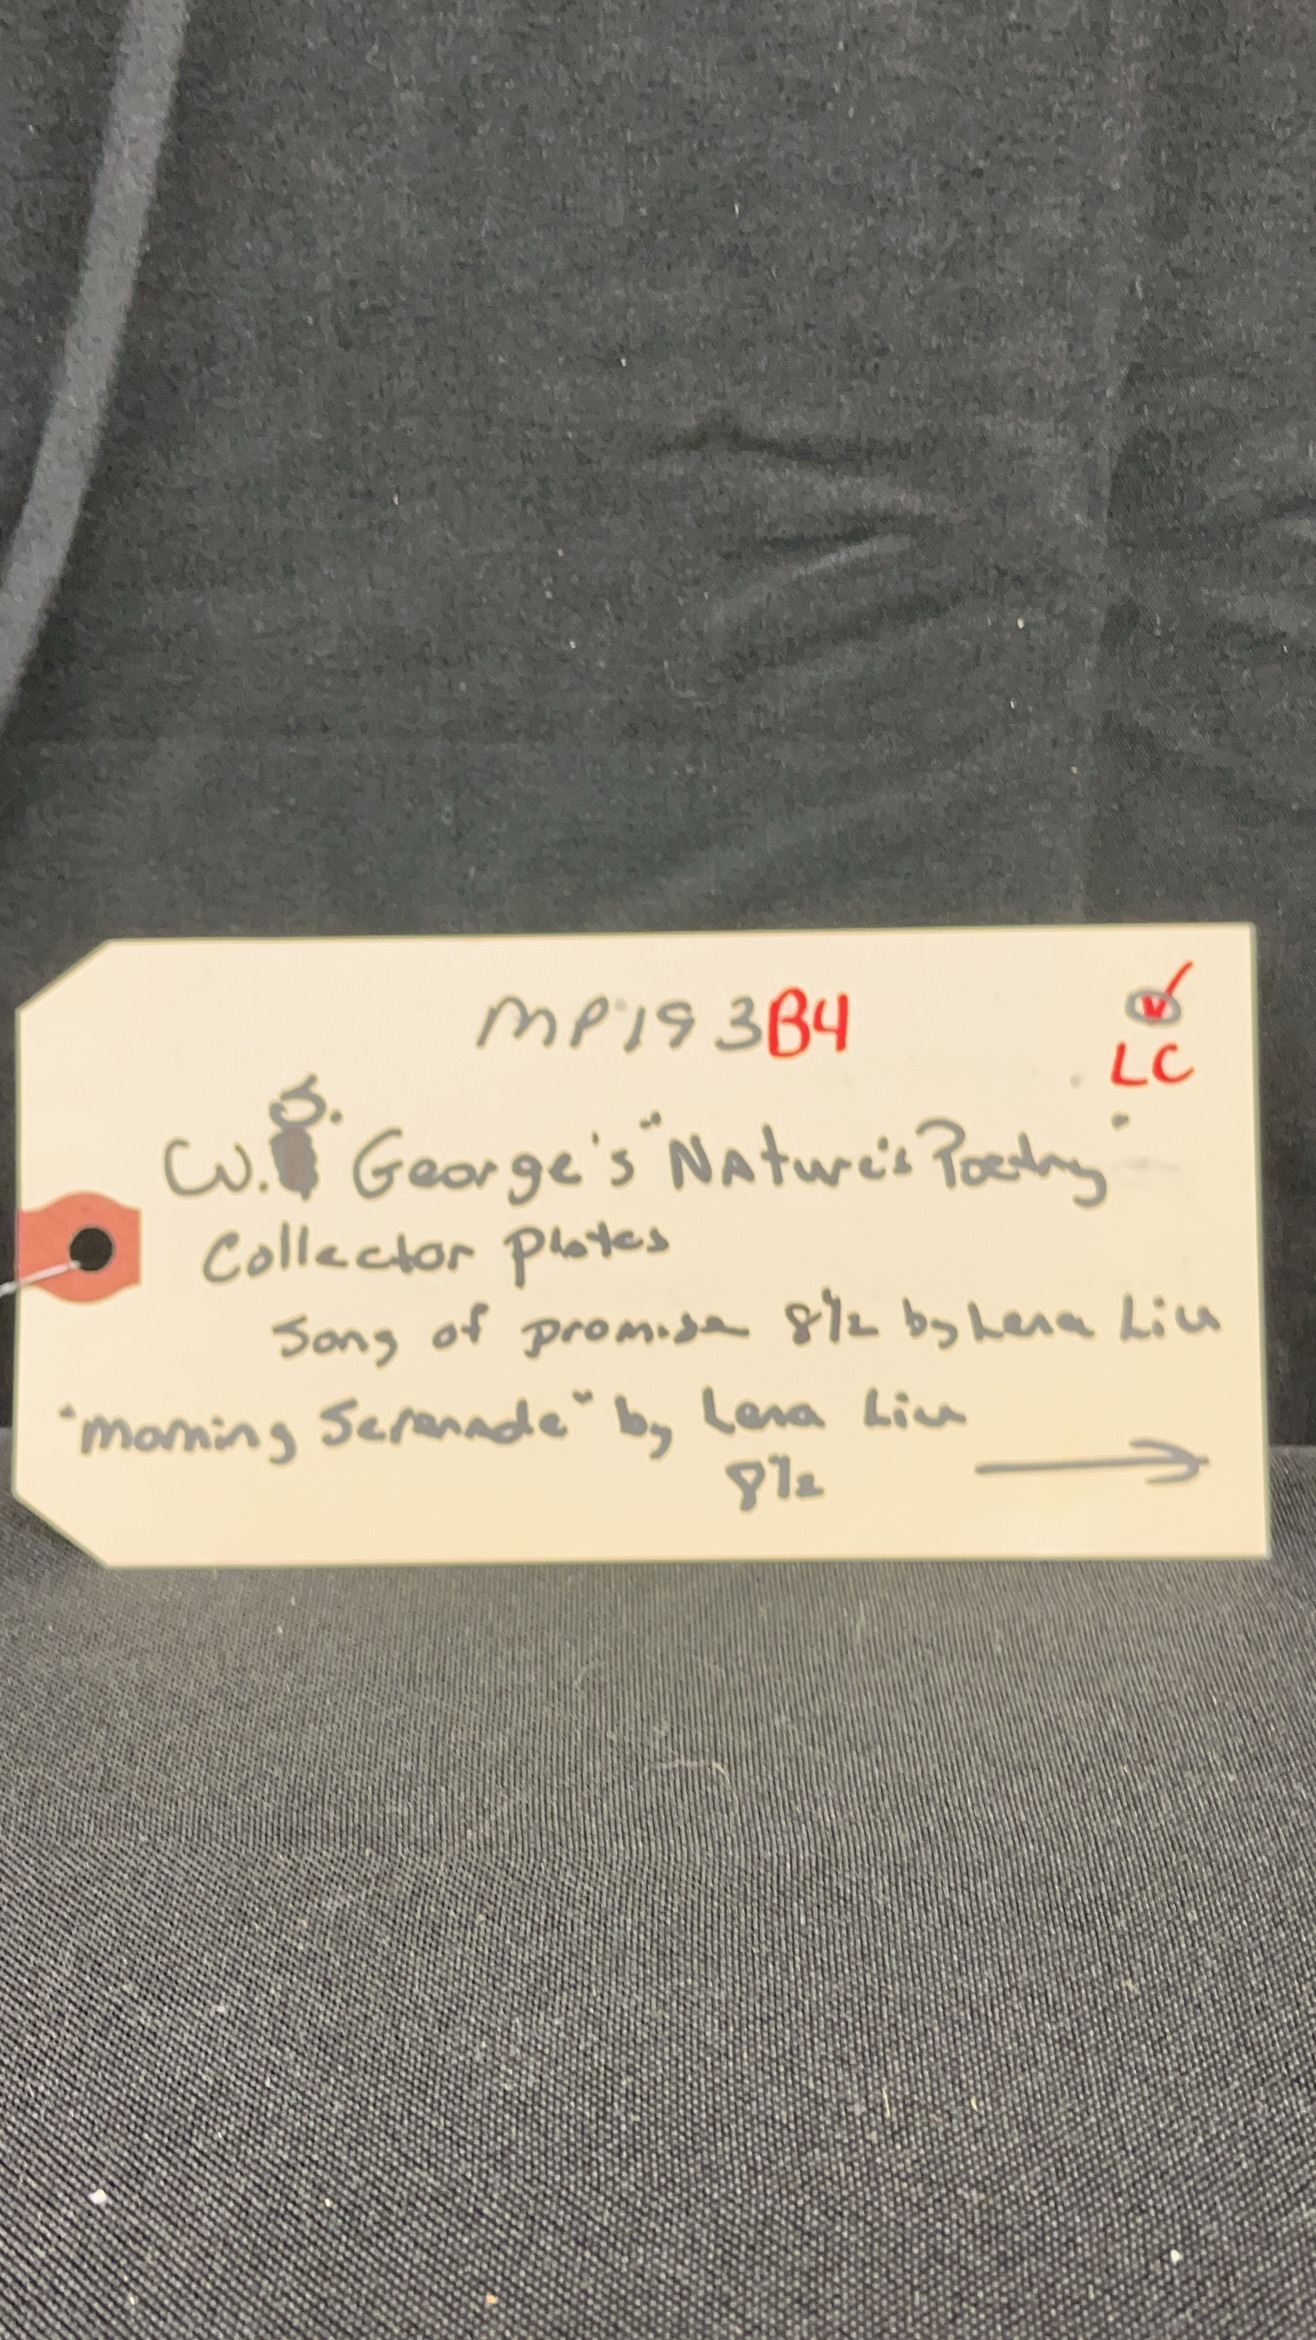 MP193B4
LC
W.S. George's "Nature's Poetry"
Collector Plates
Song of promise 8½ by Lena Liu
"morning Serenade" by Lena Liu
8½